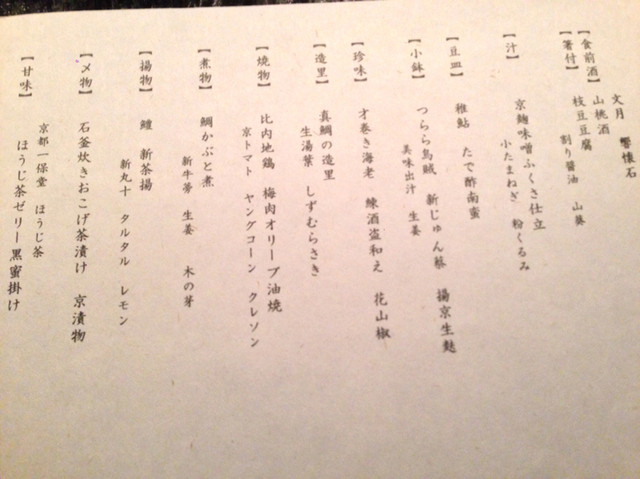 文月 響懐石
【食前酒】 山桃酒
【箸付】 枝豆豆腐
割り醤油 山葵
【汁】 京麹味噌ふくさ仕立
小たまねぎ 粉くるみ
【豆皿】 稚鮎 たで酢南蛮
【小鉢】 つらら烏賊 新じゅん菜 揚京生麩
美味出汁 生姜
【珍味】 才巻き海老 練酒盗和え 花山椒
【造里】 真鯛の造里
生湯葉 しずむらさき
【焼物】 比内地鶏 梅肉オリーブ油焼
京トマト ヤングコーン クレソン
【煮物】 鯛かぶと煮
新牛蒡 生姜 木の芽
【揚物】 鱧 新茶揚
新丸十 タルタル レモン
【〆物】 石釜炊きおこげ茶漬け 京漬物
【甘味】 京都一保堂 ほうじ茶
ほうじ茶ゼリー黒蜜掛け